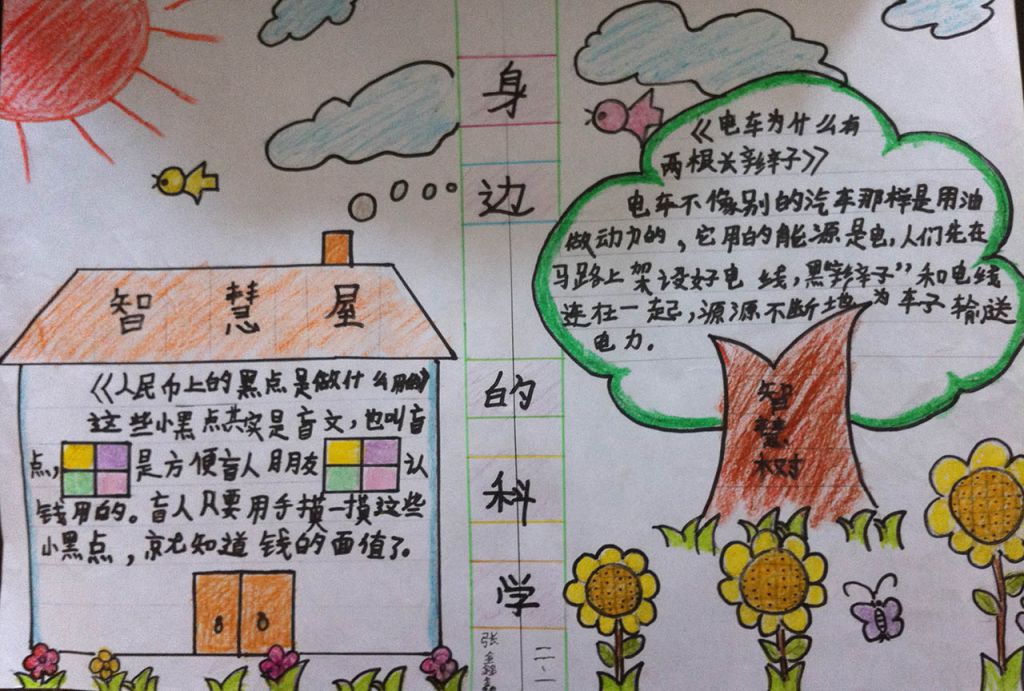 身边的科学
智慧屋
《人民币上的黑点是做什么用的》
这些小黑点其实是盲文,也叫盲
点,是方便盲人朋友认
钱用的。盲人只要用手摸一摸这些
小黑点,就知道钱的面值了。
《电车为什么有
两根长辫子》
电车不像别的汽车那样是用油
做动力的,它用的能源是电,人们先在
马路上架设好电线,黑辫子”和电线
连在一起,源源不断地为车子输送
电力。
智慧树
二、一